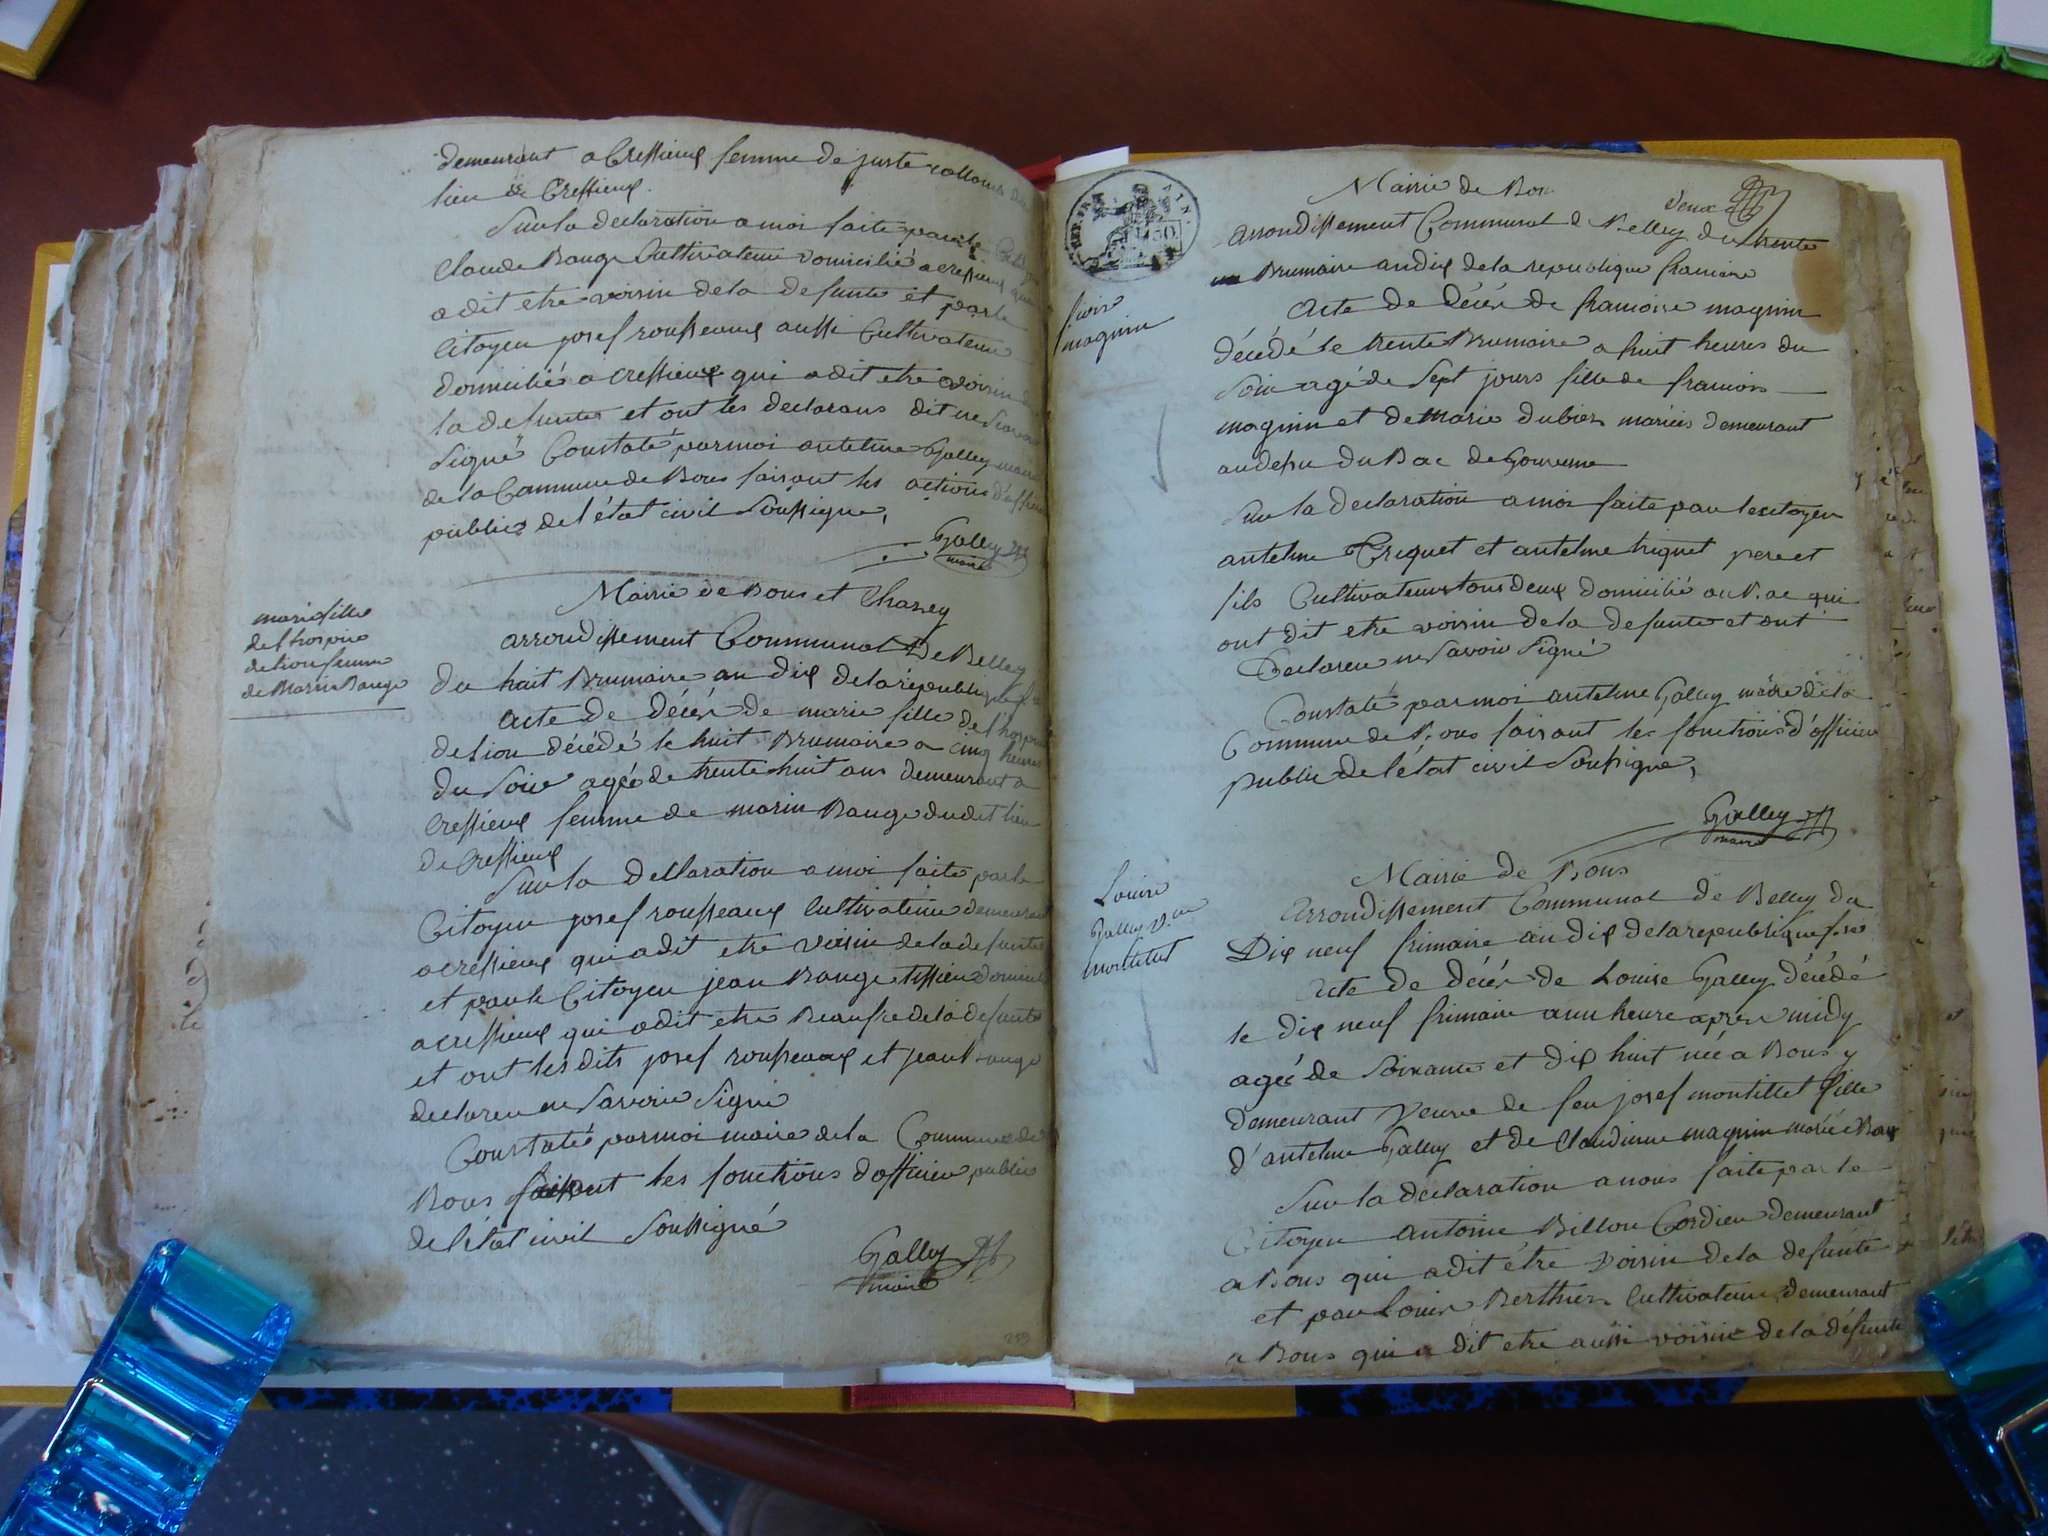 demeurant a Cressieux femme de juste
lieu de Cressieux.
Sur la declaration a moi faite par le
Claude Bauge Cultivateur domicilié a cressieux qui
a dit etre voisin de la defunte et par le
Citoyen josef rousseaux aussi Cultivateur
domicilié a cressieux qui a dit etre voisin de
la defunte et ont les declarans dit ne Scavoir
Signé Constaté par moi antelme Galley maire
de la Commune de Bons faisant les actions d'officier
public de l'état civil Soussigné,
Galley
maire
Mairie de Bons et Chazey
marie fille
de l'hospice
de lion femme
de Marin Bauge
arrondissement Communal de Belley
du huit Brumaire an dix de la republique
acte de décès de marie fille de l'hospice
de lion décédé le huit Brumaire a cinq heures
du Soir agée de trente huit ans demeurant a
Cressieux femme de marin Bauge du dit lieu
de Cressieux
Sur la declaration a moi faite par le
Citoyen josef rousseaux Cultivateur demeurant
a cressieux qui a dit etre voisin de la defunte
et par le Citoyen jean Bauge tissieu domicilié
a cressieux qui a dit etre Beaufre de la defunte
et ont les dits josef rousseaux et jean Bauge
declareu ne Savoir Signé
Constaté par moi maire de la Commune de
Bons faisant les fonctions d'officier public
de l'état civil Soussigné
Galley
maire
259
Mairie de Bons
deux
arrondissement Communal de Belley du trente
Brumaire an dix de la republique francaise
magnin
acte de décès de francoise magnin
décédé le trente Brumaire a huit heures du
Soir agé de Sept jours fille de francois
magnin et de Marie dubier mariés demeurant
au dessu du Bac de
Sur la declaration a moi faite par le citoyen
antelme Triquet et antelme triquet pere et
fils Cultivateurs tous deux domicilié au Bac qui
ont dit etre voisin de la defunte et ont
Declareu ne Savoir Signé
Constaté par moi antelme Galley maire de la
Commune de Bons faisant les fonctions d'officier
public de l'état civil Soussigné,
Galley
maire
Mairie de Bons
Louise
Galley v.ve
montillet
arrondissement Communal de Belley du
Dix neuf frimaire an dix de la republique f.se
acte de décès de Louise Galley décédé
le dix neuf frimaire a un heure apres midy
agée de Soixante et dix huit née a Bons y
demeurant veuve de feu josef montillet fille
d'antelme Galley et de Claudinne magnin marié a Bons
Sur la declaration a nous faite par le
Citoyen antoine Billon Cordieu demeurant
a Bons qui a dit être voisin de la defunte
et par Louis Berthier Cultivateur demeurant
a Bons qui a dit etre aussi voisin de la défunte